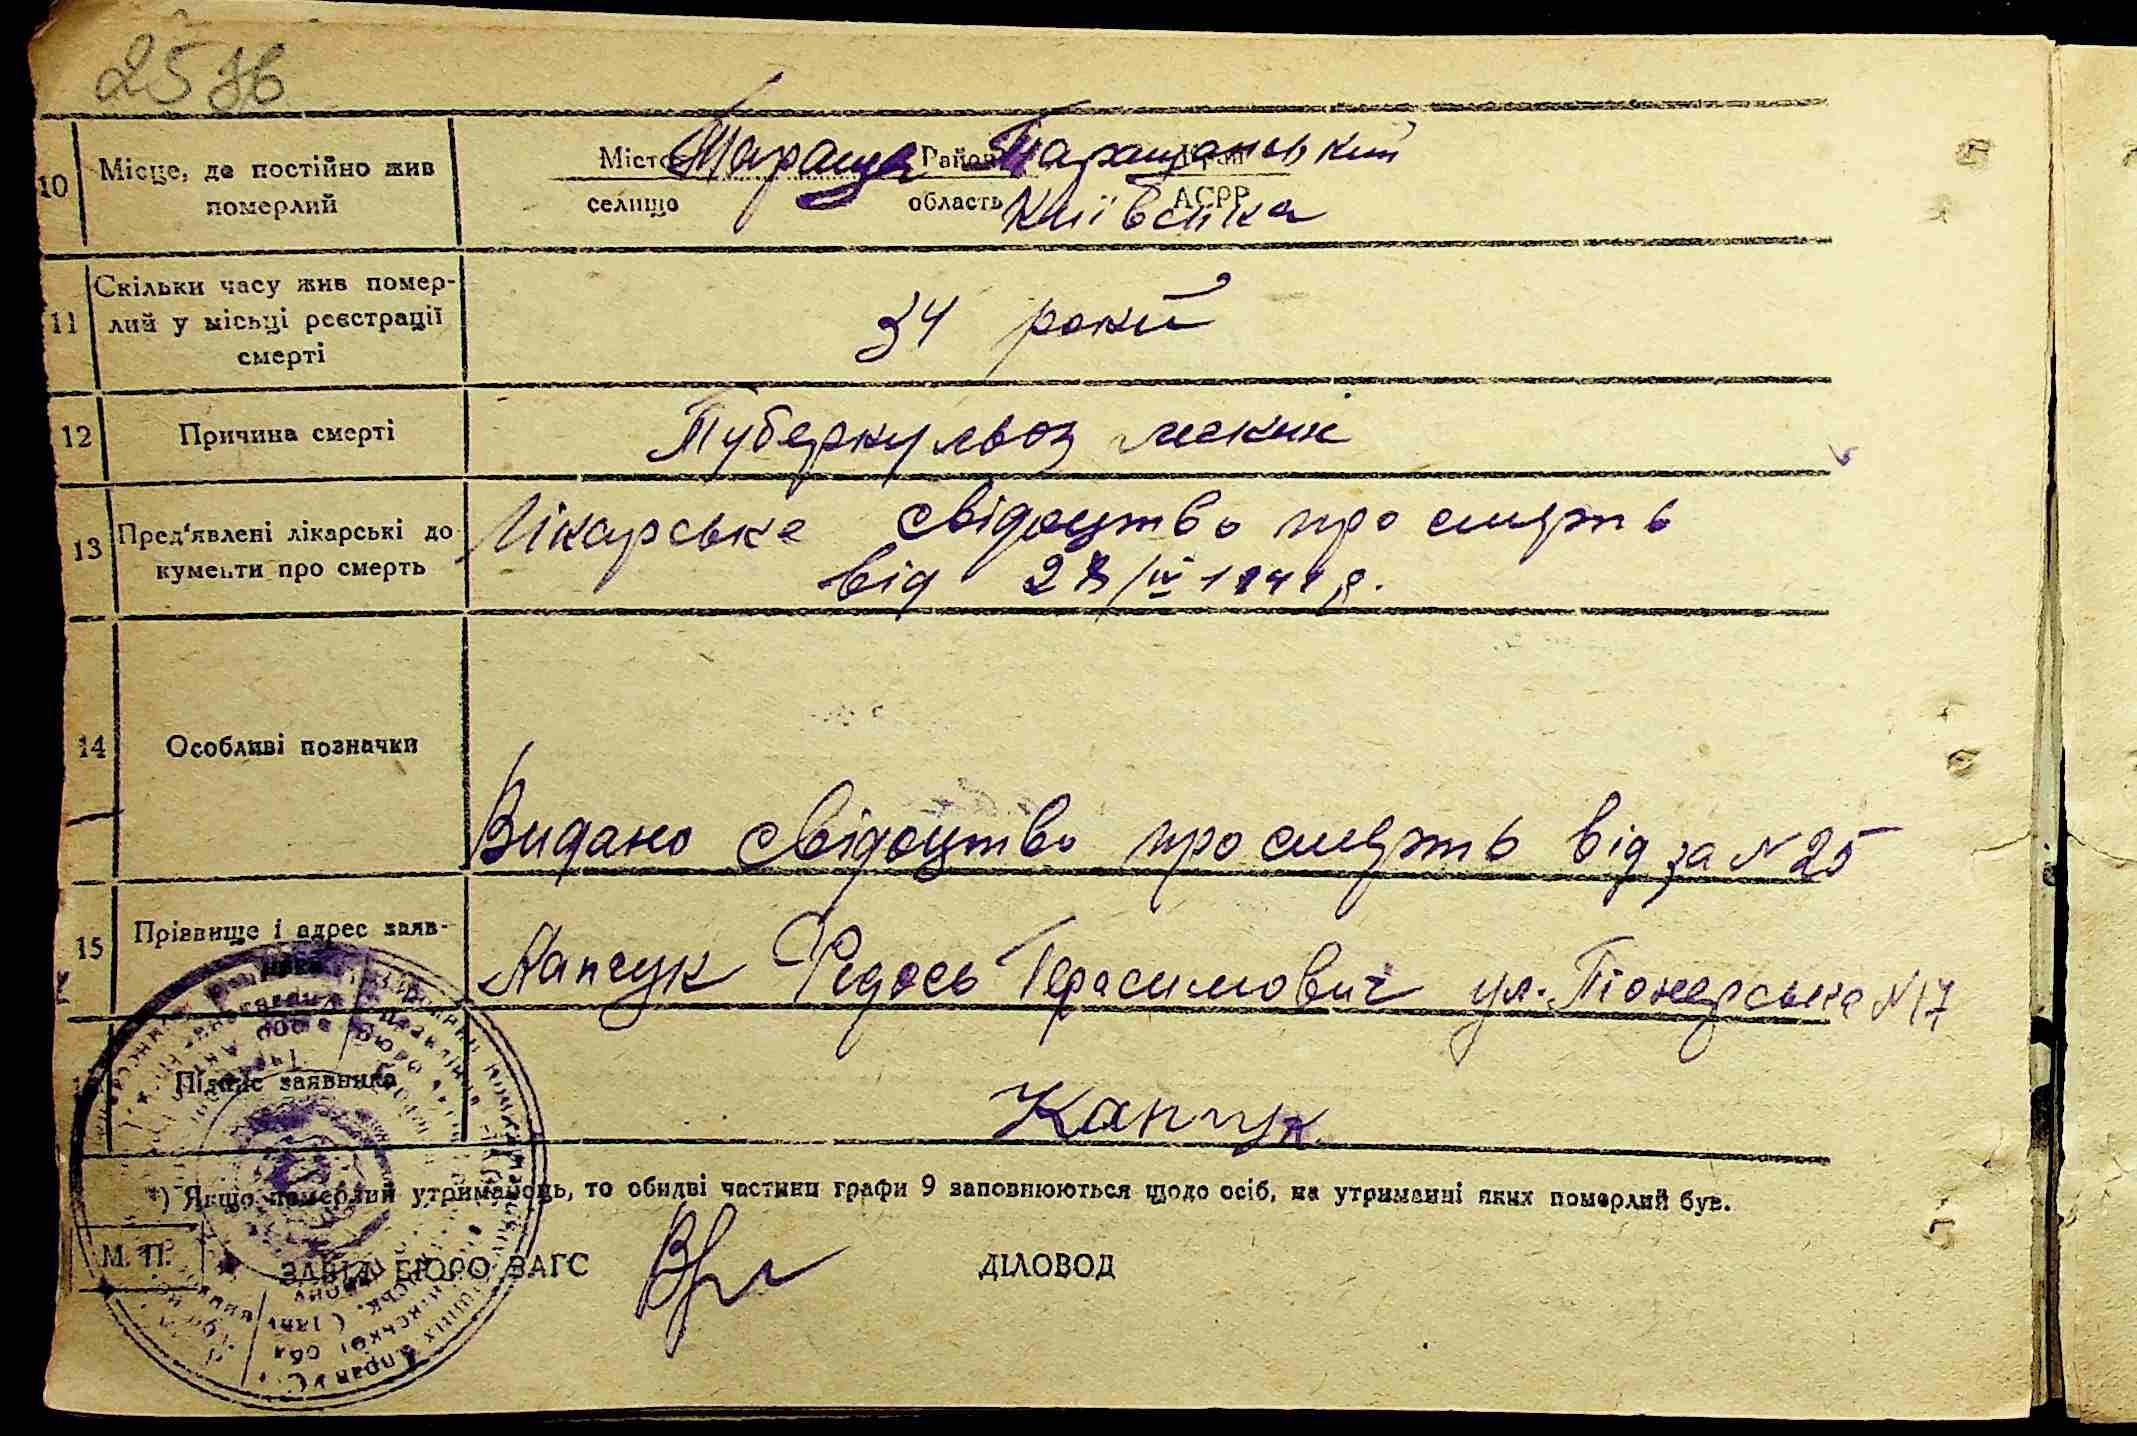 25 зв
10 Місце, де постійно жив померлий
Місто Тараща Район Таращанський Край
селище область Київська АСРР
11 Скільки часу жив помер-
лий у місьці реєстрації
смерті
34 роки
12 Причина смерті Туберкульоз легкиї
13 Пред'явлені лікарські до
кументи про смерть
Лікарське свідоцтво про смерть
від 28/IV 1941 р.
14 Особливі позначки
Видано свідоцтво про смерть від за № 25
15 Прізвище і адрес заяв-
ника
Капчук Федось Герасимович ул. Піонерська №17
Підпис заявника Капчук
*) Якщо померлий утриманець, то обидві частини графи 9 заповнюються щодо осіб, на утриманні яких померлий був.
М. П.
ЗАВІД. БЮРО ЗАГС ДІЛОВОД